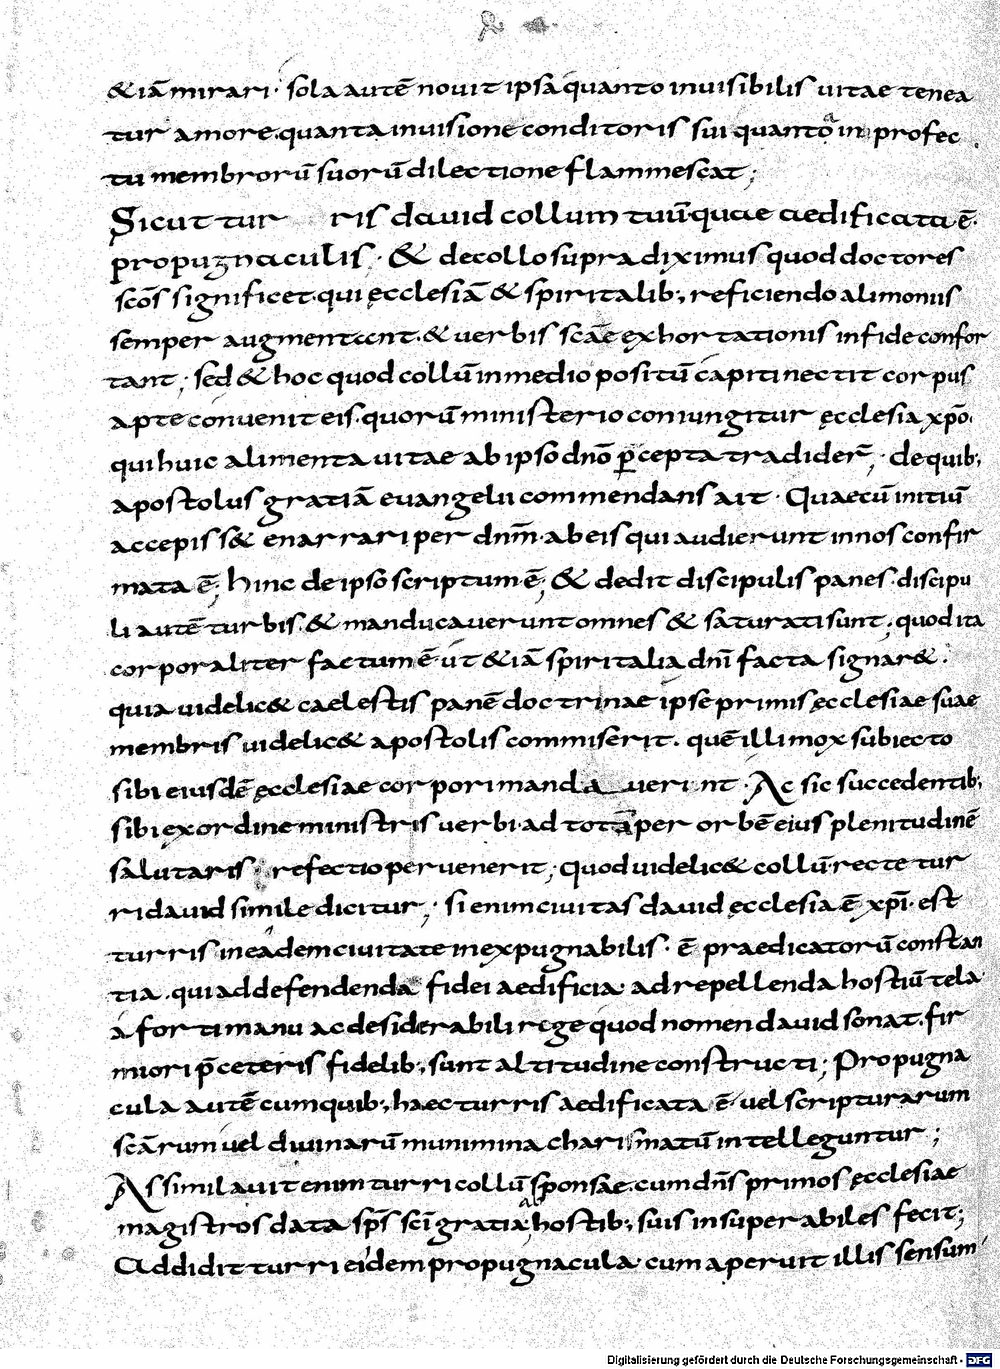 &iā mirari· sola autē novit ipsa quanto invisibilis vitae tenea
tur amore. quanta in visione conditoris sui quanto in profec
tu membrorū suorū dilectione flammescat;
Sicut tur ris david collum tuū quae aedificata ē.
propugnaculis· & de collo supra diximus quod doctores
scōs significet. qui ęcclesiā & spiritalib; reficiendo alimoniis
semper augmentant. & verbis scāe exhortationis in fide confor
tant; sed & hoc quod collū in medio positū capiti nectit corpus
apte convenit eis. quorū ministerio coniungitur ęcclesia xp̄o.
qui huic alimenta vitae ab ipso dn̄o p̄cepta tradider̄; de quib;
apostolus gratiā evangelii commendans ait· Quae cū initiū
accepiss& enarrari per dnm̄. ab eis qui audierunt in nos confir
mata ē; hinc de ipso scriptum ē; & dedit discipulis panes. discipu
li autē turbis. & manducaverunt omnes & saturati sunt. quod ita
corporaliter factum ē út &iā spiritalia dnī facta signar&.
quia videlic& caelestis panē doctrinae ipse primis ęcclesiae suae
membris videlic& apostolis commiserit. quē illi mox subiecto
sibi eiusdē ęcclesiae corpori manda verint. Ac sic succedentib;
sibi ex ordine ministris verbi. ad totā per orbē eius plenitudinē
salutaris refectio pervenerit; quod videlic& collū recte tur
ri david simile dicitur; si enim civitas david ęcclesia ē xpī. est
turris in eádem civitate inexpugnabilis· ē praedicatorū constan
tia. qui ad defendenda fidei aedificia. ad repellenda hostiū tela
á forti manu ac desiderabili rege quod nomen david sonat. fir
miori p̄ ceteris fidelib; sunt altitudine constructi; Propugna
cula autē cum quib; haec turris aedificata ē. vel scripturarum
scārum vel divinarū munimina charismatū intelleguntur;
Assimilavit enim turri collū sponsae. cum dn̄s primos ęcclesiae
magistros data sp̄s scī gratia ab hostib; suis insuperabiles fecit;
Addidit turri eídem propugnacula. cum aperuit illis sensum
Digitalisierung gefördert durch die Deutsche Forschungsgemeinschaft - DFG